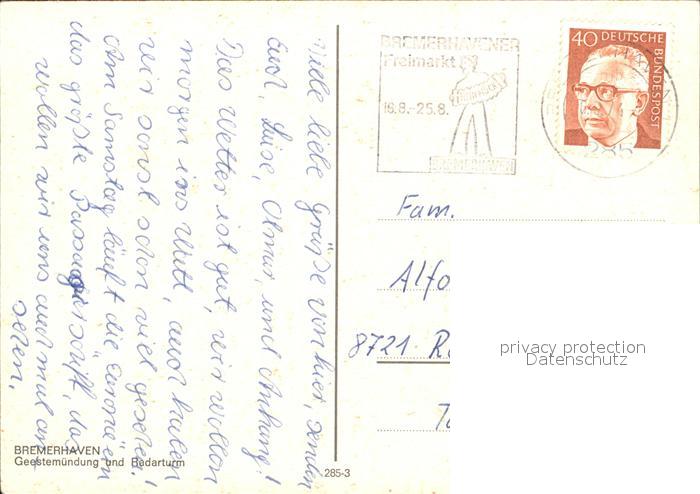 Viele liebe Grüße von hier, senden
Euch, Luise, Otmar, und Anhang!
Das Wetter ist gut, wir wollen
morgen ins Watt, auch haben
wir sonst schon viel gesehen!
Am Samstag läuft die Europa ein
das größte Passagierschiff, das
wollen wir uns auch mal an
sehen.
BREMERHAVEN
Geestemündung und Radarturm
285-3
BREMERHAVENER
Freimarkt
16.8.-25.8.
BREMERHAVEN
40 DEUTSCHE
BUNDESPOST
285
Fam.
Alfo
8721 R
privacy protection
Datenschutz